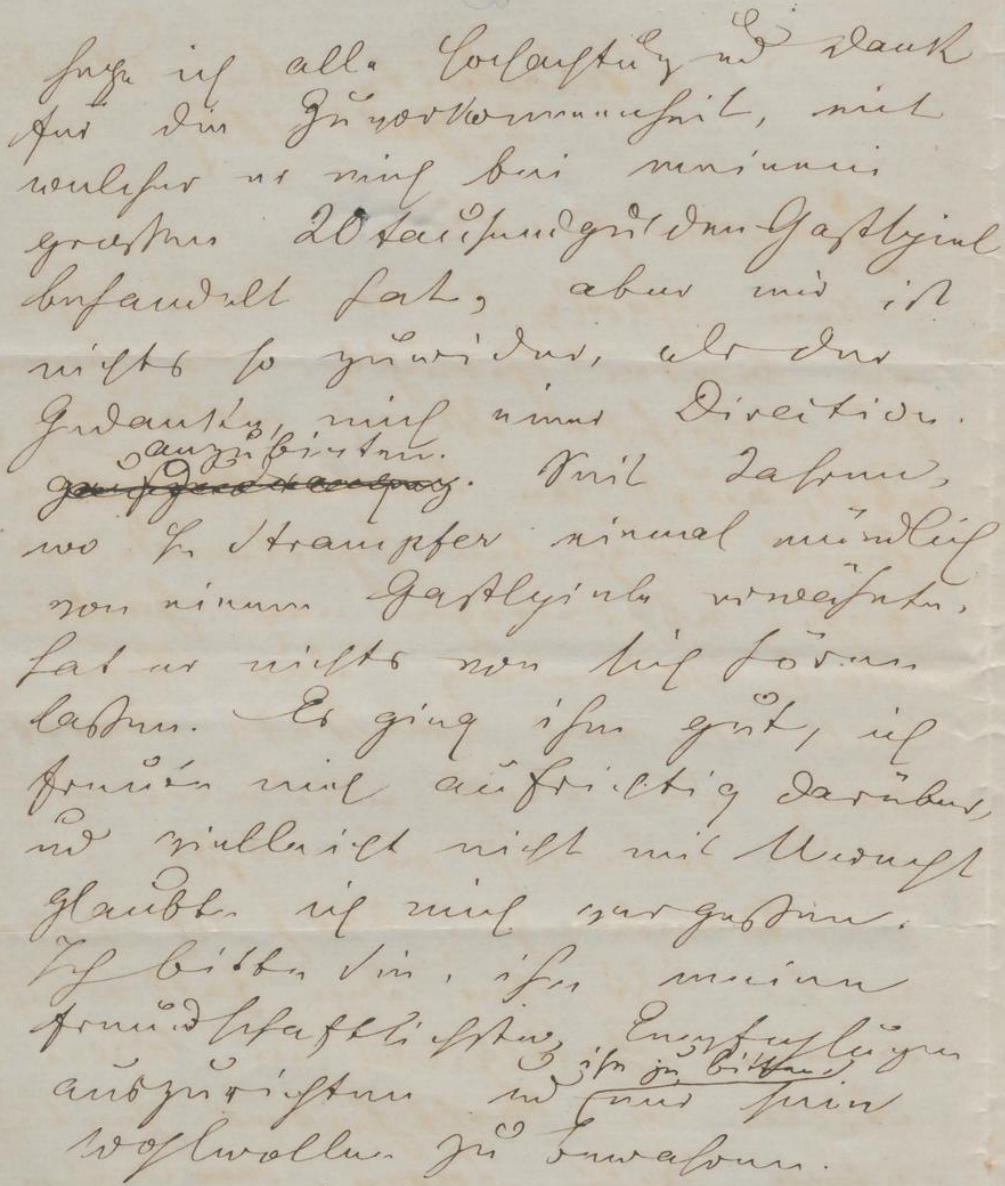 hege ich alle Hochachtung und Dank
für die Zuvorkommenheit, mit
welcher er mich bei meinem
grossen 20 tausendgulden Gastspiel
behandelt hat, aber mir ist
nichts so zuwider, als der
Gedanke, mich einer Direction
anzubieten.
Seit Jahren,
wo H. Strampfer einmal mündlich
von einem Gastspiele erwähnte,
hat er nichts von sich hören
lassen. Es ging ihm gut, ich
freute mich aufrichtig darüber,
und vielleicht nicht mit Unrecht
glaubte ich mich vergessen.
Ich bitte Sie, ihm meine
freundschaftlichsten Empfehlungen
ihn zu bitten
auszurichten und mir sein
Wohlwollen zu bewahren.